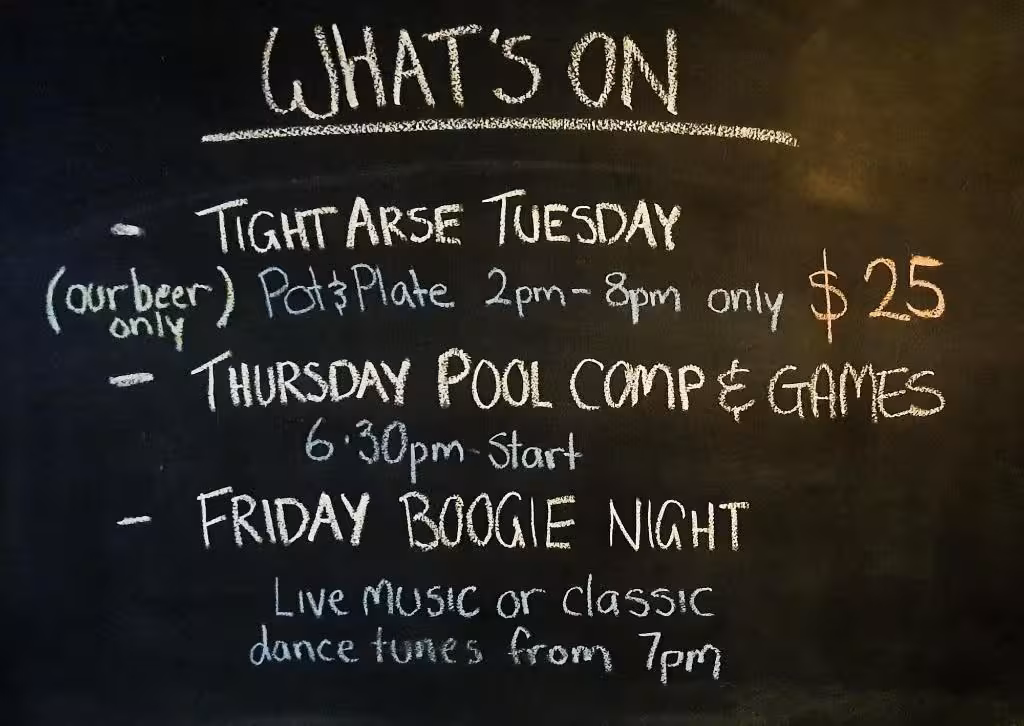 WHAT'S ON
- TIGHT ARSE TUESDAY
(our beer only) Pot & Plate 2pm - 8pm only $25
- THURSDAY POOL COMP & GAMES
6.30pm start
- FRIDAY BOOGIE NIGHT
Live MUSIC or classic
dance tunes from 7pm